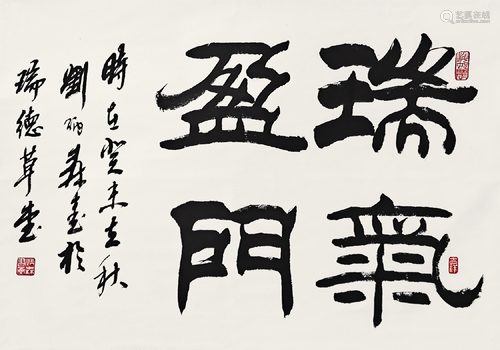 瑞氣
盈門
時在癸未立秋
劉炳森書於
瑞德草堂